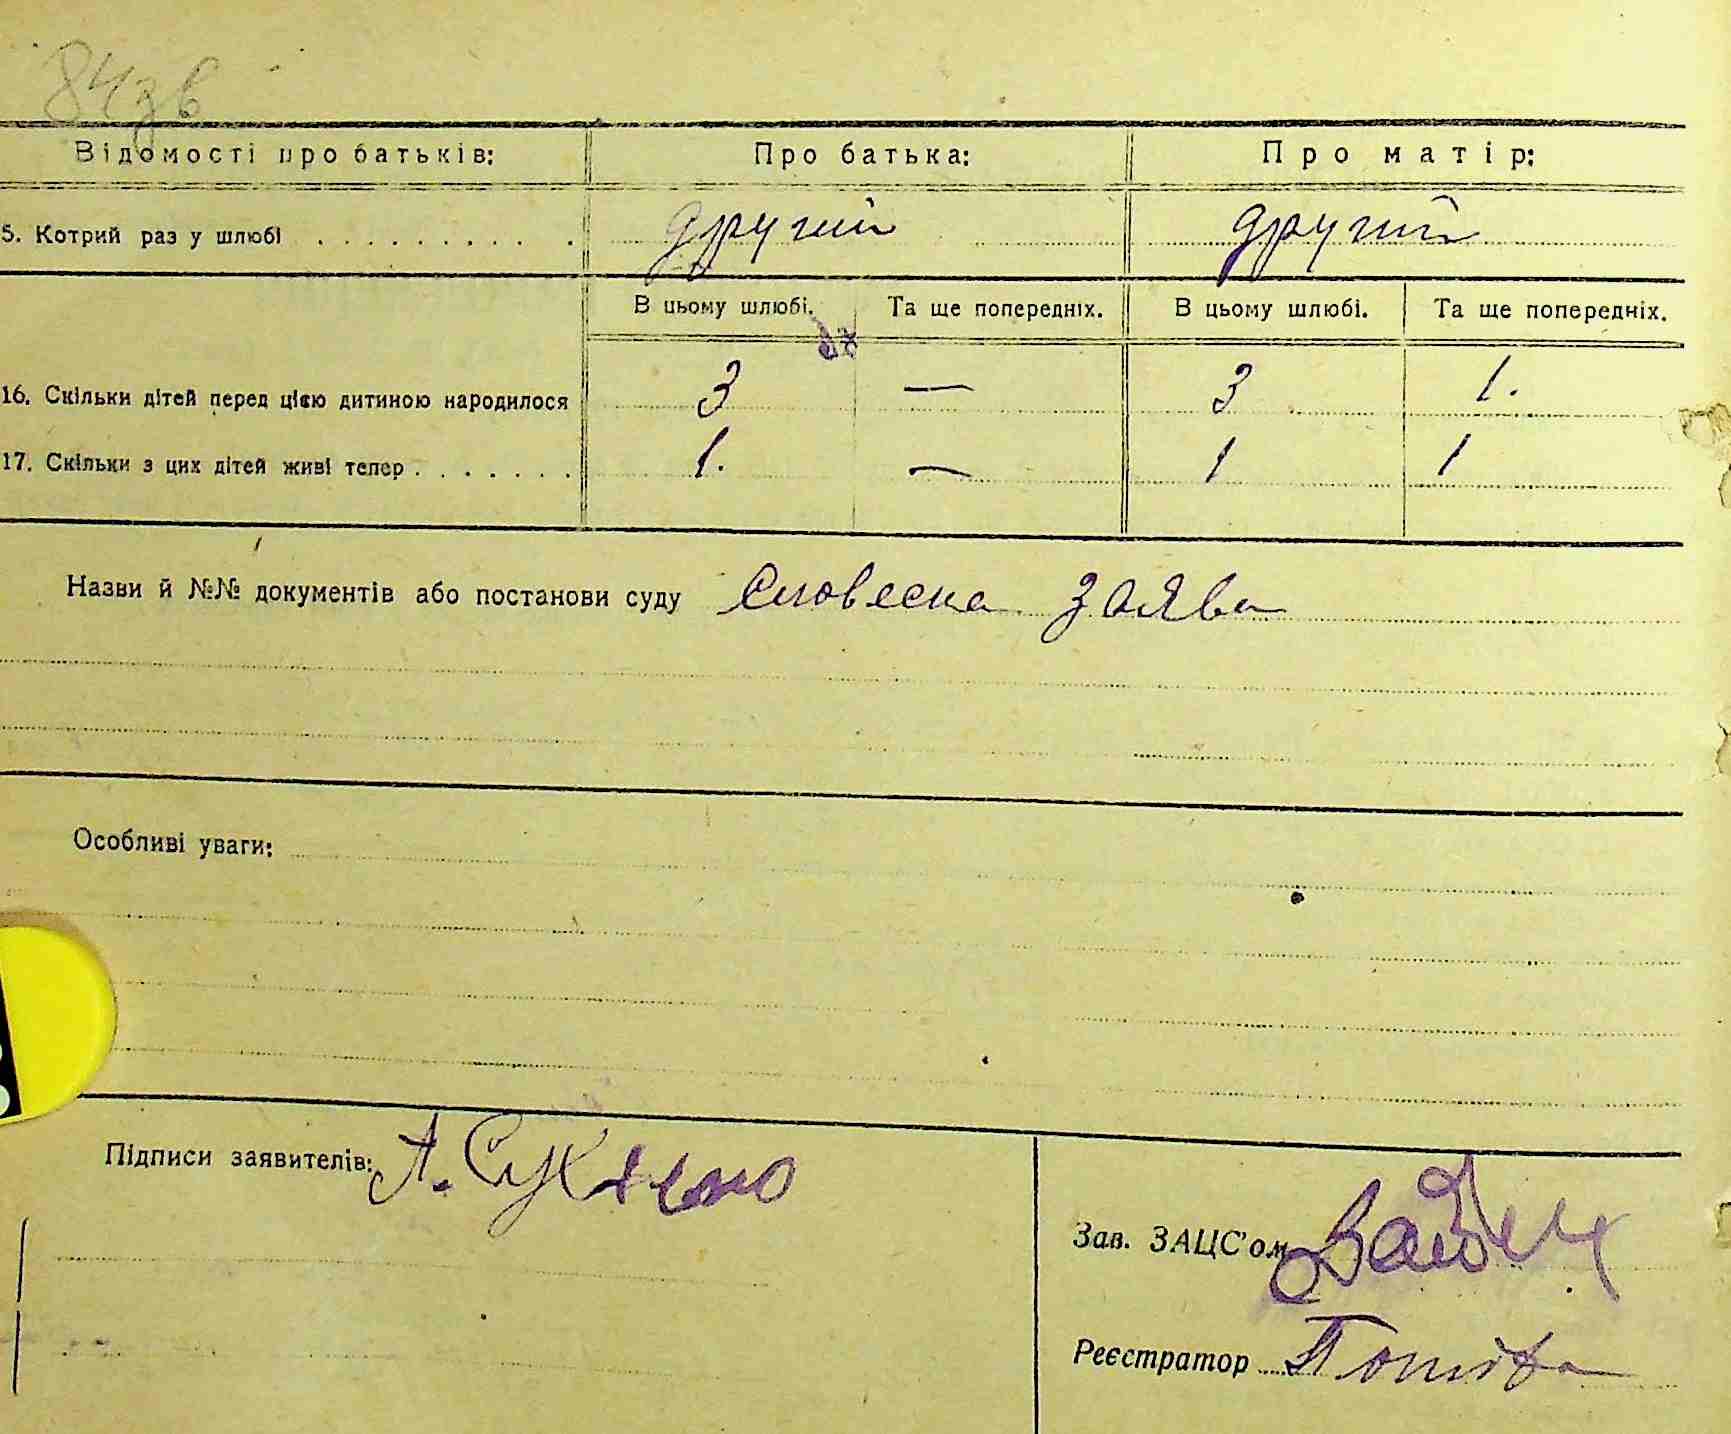 84зв
Відомості про батьків: Про батька: Про матір:
5. Котрий раз у шлюбі . . . . . . . . . . другий другий
В цьому шлюбі. Та ще попередніх. В цьому шлюбі. Та ще попередніх.
16. Скільки дітей перед цією дитиною народилося 3 — 3 1.
17. Скільки з цих дітей живі тепер . . . . . . . 1. — 1 1
Назви й №№ документів або постанови суду Словесна заява
Особливі уваги:
Підписи заявителів: А.
Зав. ЗАЦС'ом
Реєстратор